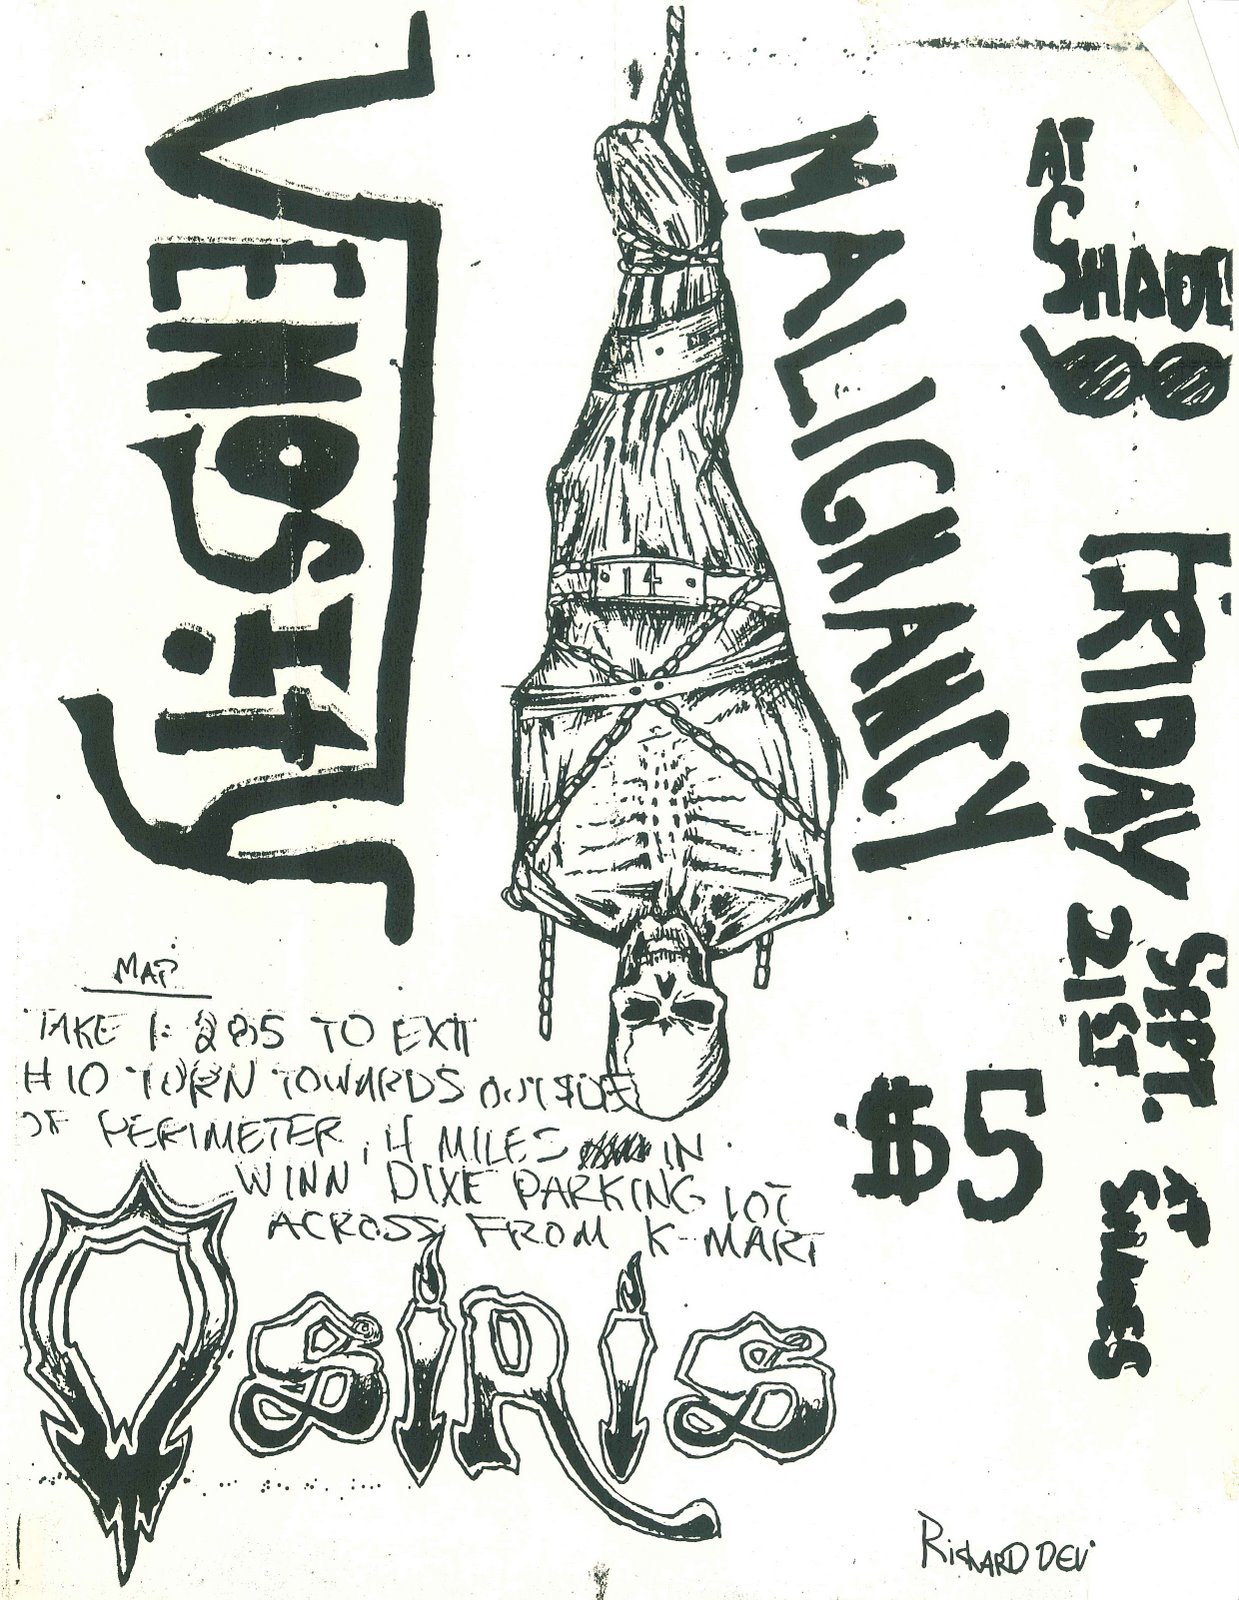 VENOSITY
MALIGNANCY
AT
SHADES
FRIDAY
SEPT.
21ST
AT
SHADES
$5
14
MAP
TAKE I-285 TO EXIT
#10 TURN TOWARDS OUTSIDE
OF PERIMETER, 4 MILES IN
WINN DIXE PARKING LOT
ACROSS FROM K-MART
OSIRIS
RICHARD DEV